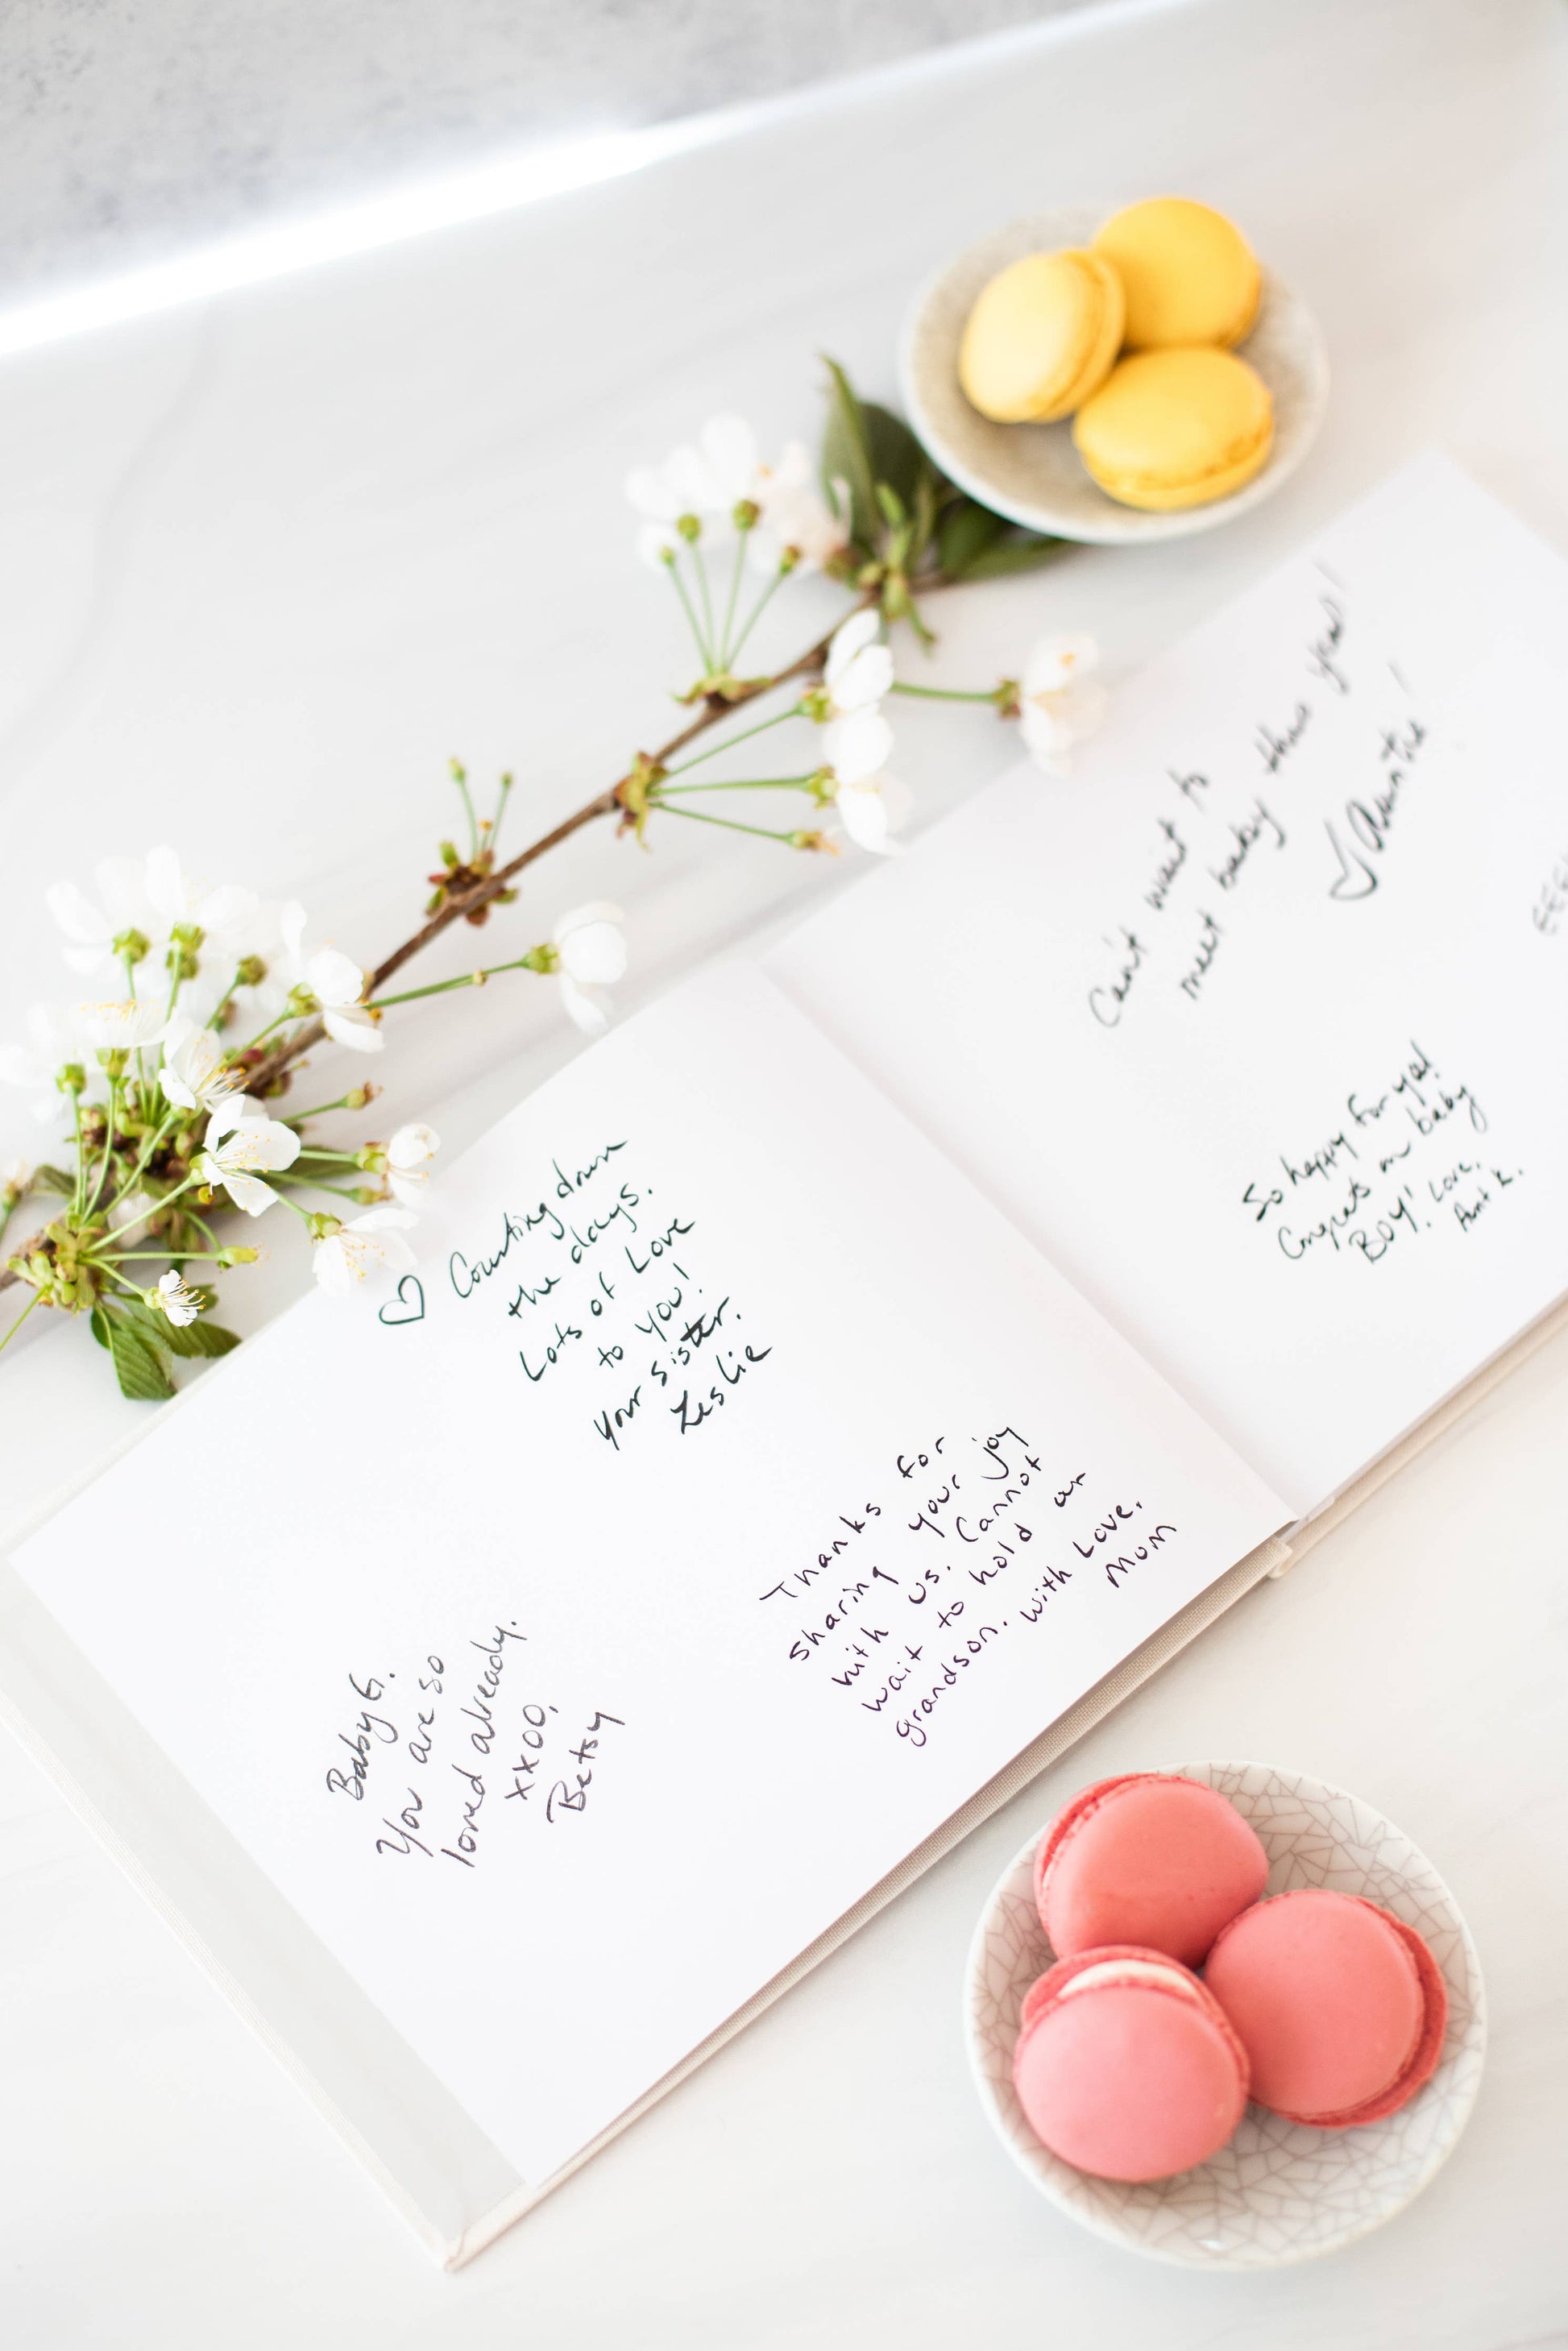 Counting down
the days.
Lots of Love
to you!
Your sister.
Leslie
Thanks for
sharing your joy
with us. Cannot
wait to hold our
grandson. With Love,
Mom
Baby G.
You are so
loved already.
xxoo,
Betsy
Can't wait to
meet baby this year!
Auntie
So happy for you!
Congrats on baby
BOY! Love,
Aunt K.